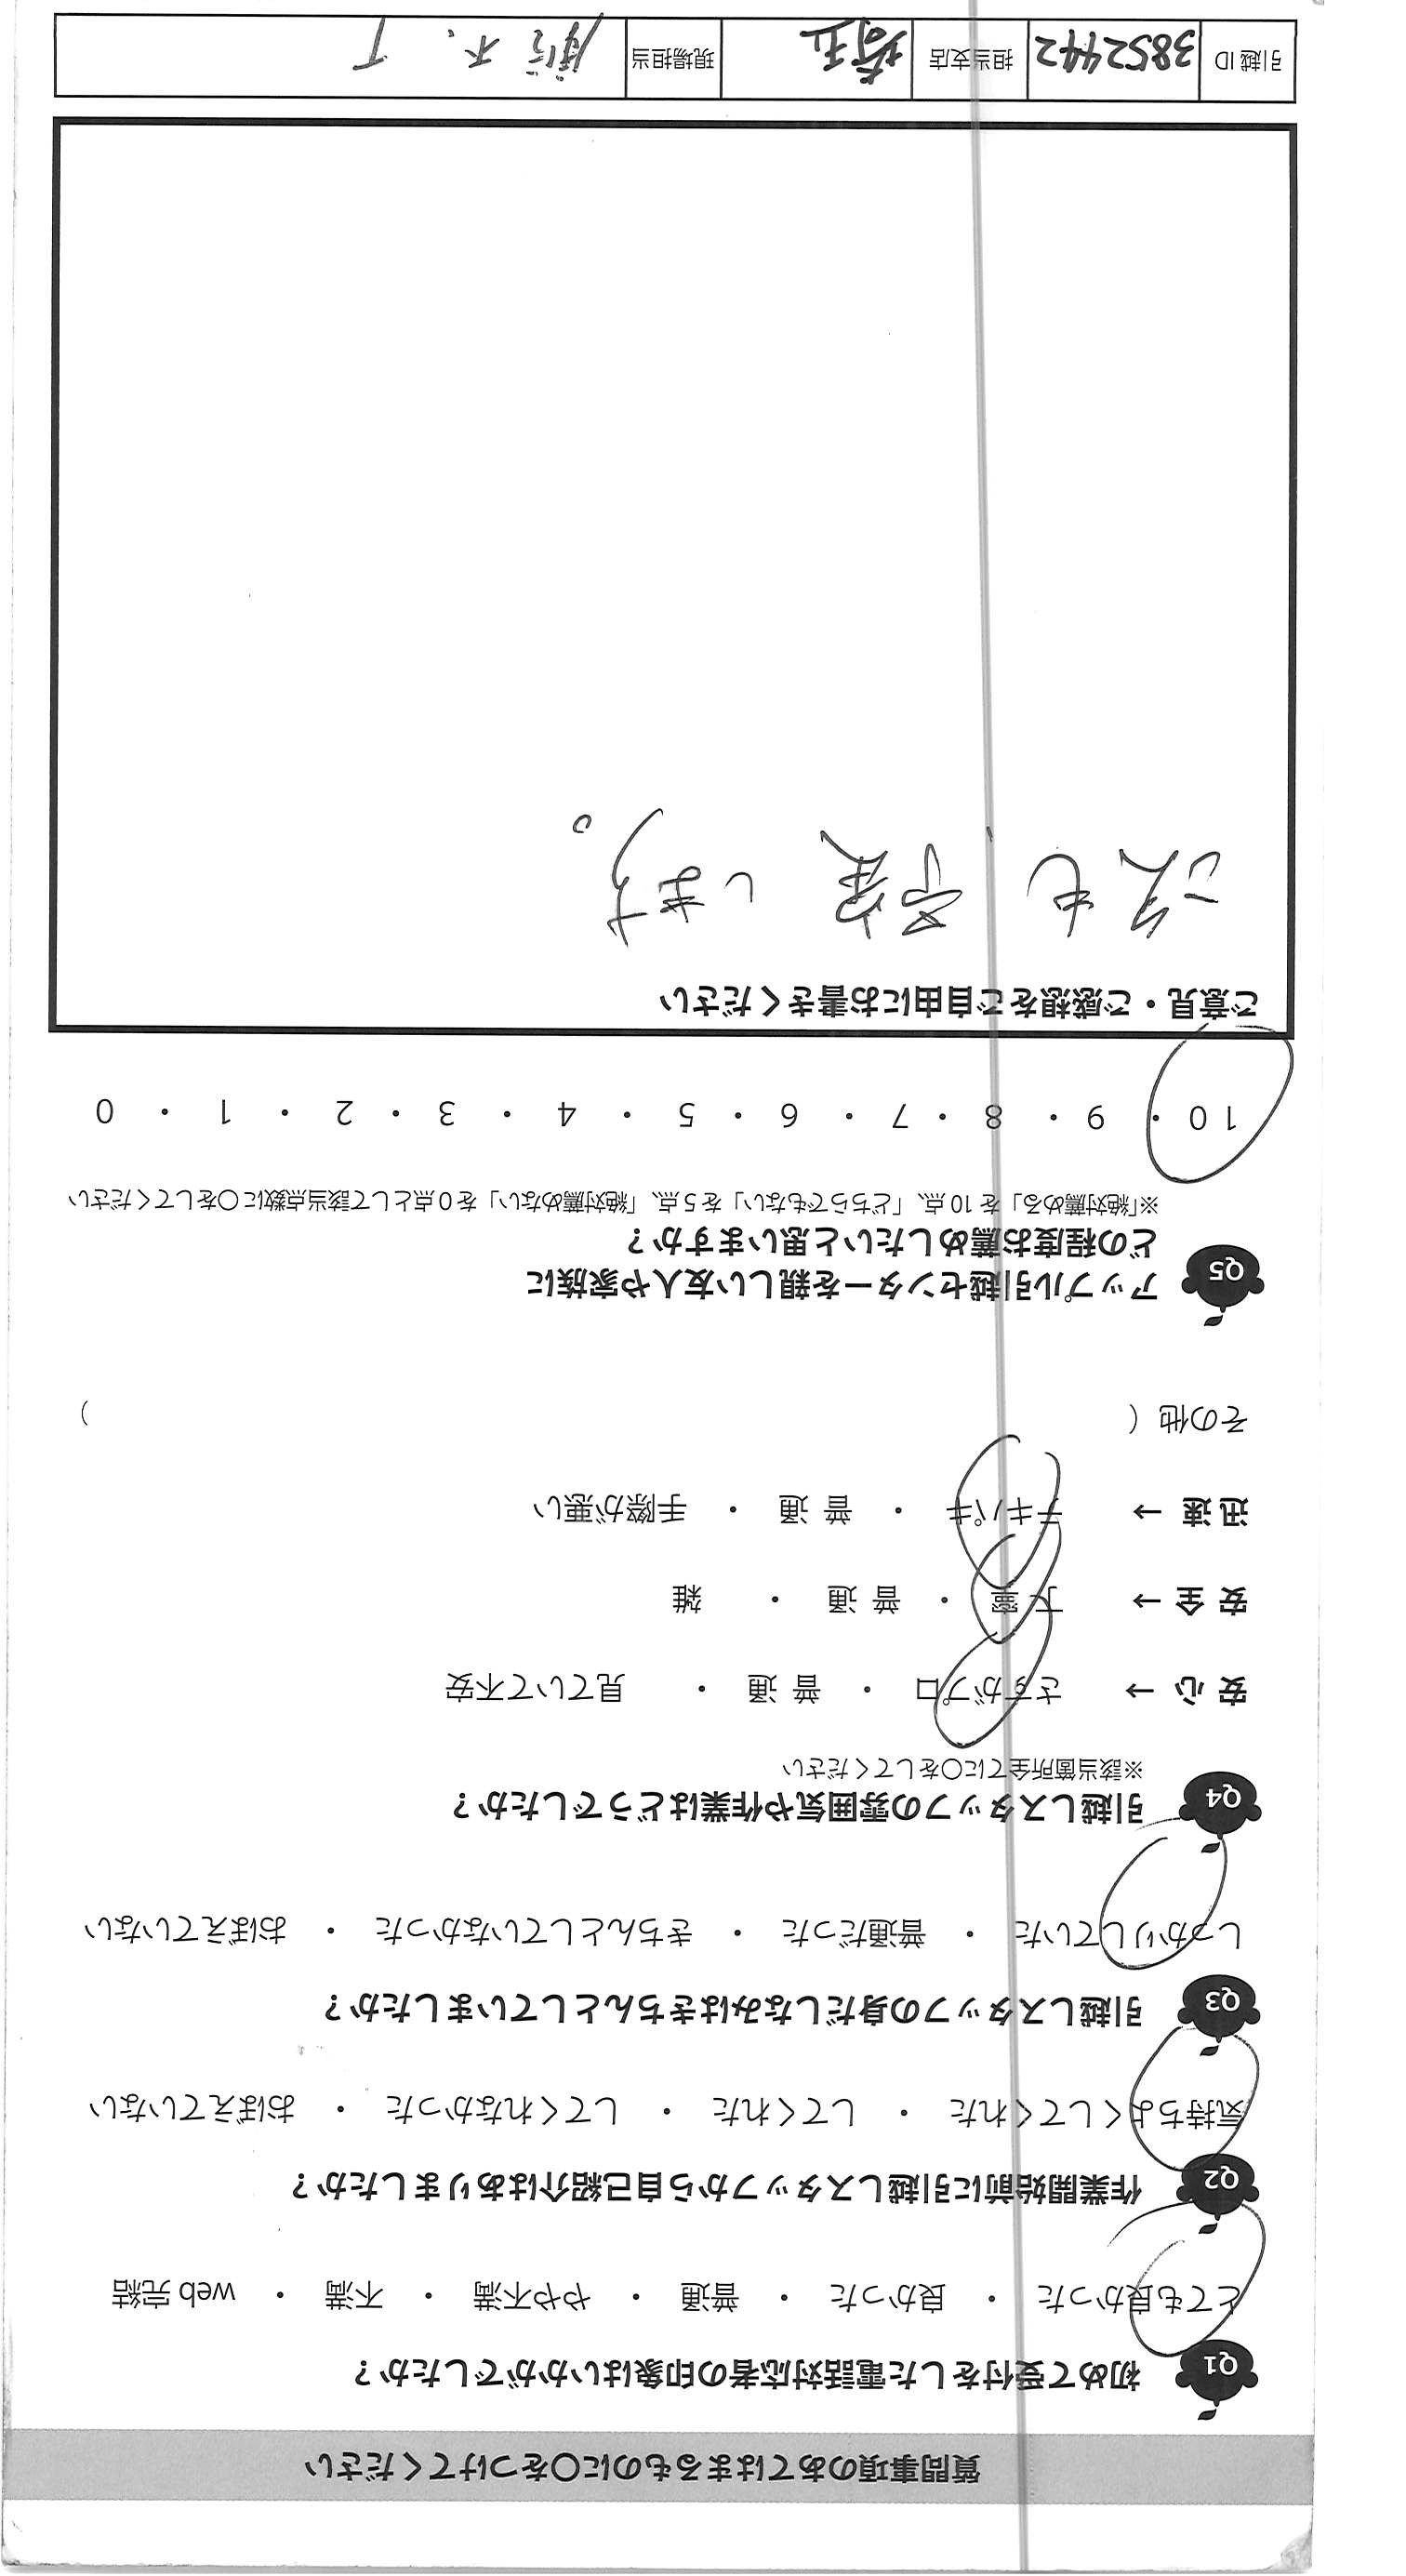 質問事項のあてはまるものに○をつけてください
Q1 初めて受付をした電話対応者の印象はいかがでしたか？
とても良かった ・ 良かった ・ 普通 ・ やや不満 ・ 不満 ・ web 完結
Q2 作業開始前に引越しスタッフから自己紹介はありましたか？
気持ちよくしてくれた ・ してくれた ・ してくれなかった ・ おぼえていない
Q3 引越しスタッフの身だしなみはきちんとしていましたか？
しっかりしていた ・ 普通だった ・ きちんとしていなかった ・ おぼえていない
Q4 引越しスタッフの雰囲気や作業はどうでしたか？
※該当箇所全てに○をしてください
安心→ さすがプロ ・ 普通 ・ 見ていて不安
安全→ 丁寧 ・ 普通 ・ 雑
迅速→ テキパキ ・ 普通 ・ 手際が悪い
その他（ ）
Q5 アップル引越センターを親しい友人や家族に
どの程度お薦めしたいと思いますか？
※「絶対薦める」を10点、「どちらでもない」を5点、「絶対薦めない」を0点として該当点数に○をしてください
10 ・ 9 ・ 8 ・ 7 ・ 6 ・ 5 ・ 4 ・ 3 ・ 2 ・ 1 ・ 0
ご意見・ご感想をご自由にお書きください
次も します。
引越ID 3852442 担当支店 埼玉 現場担当